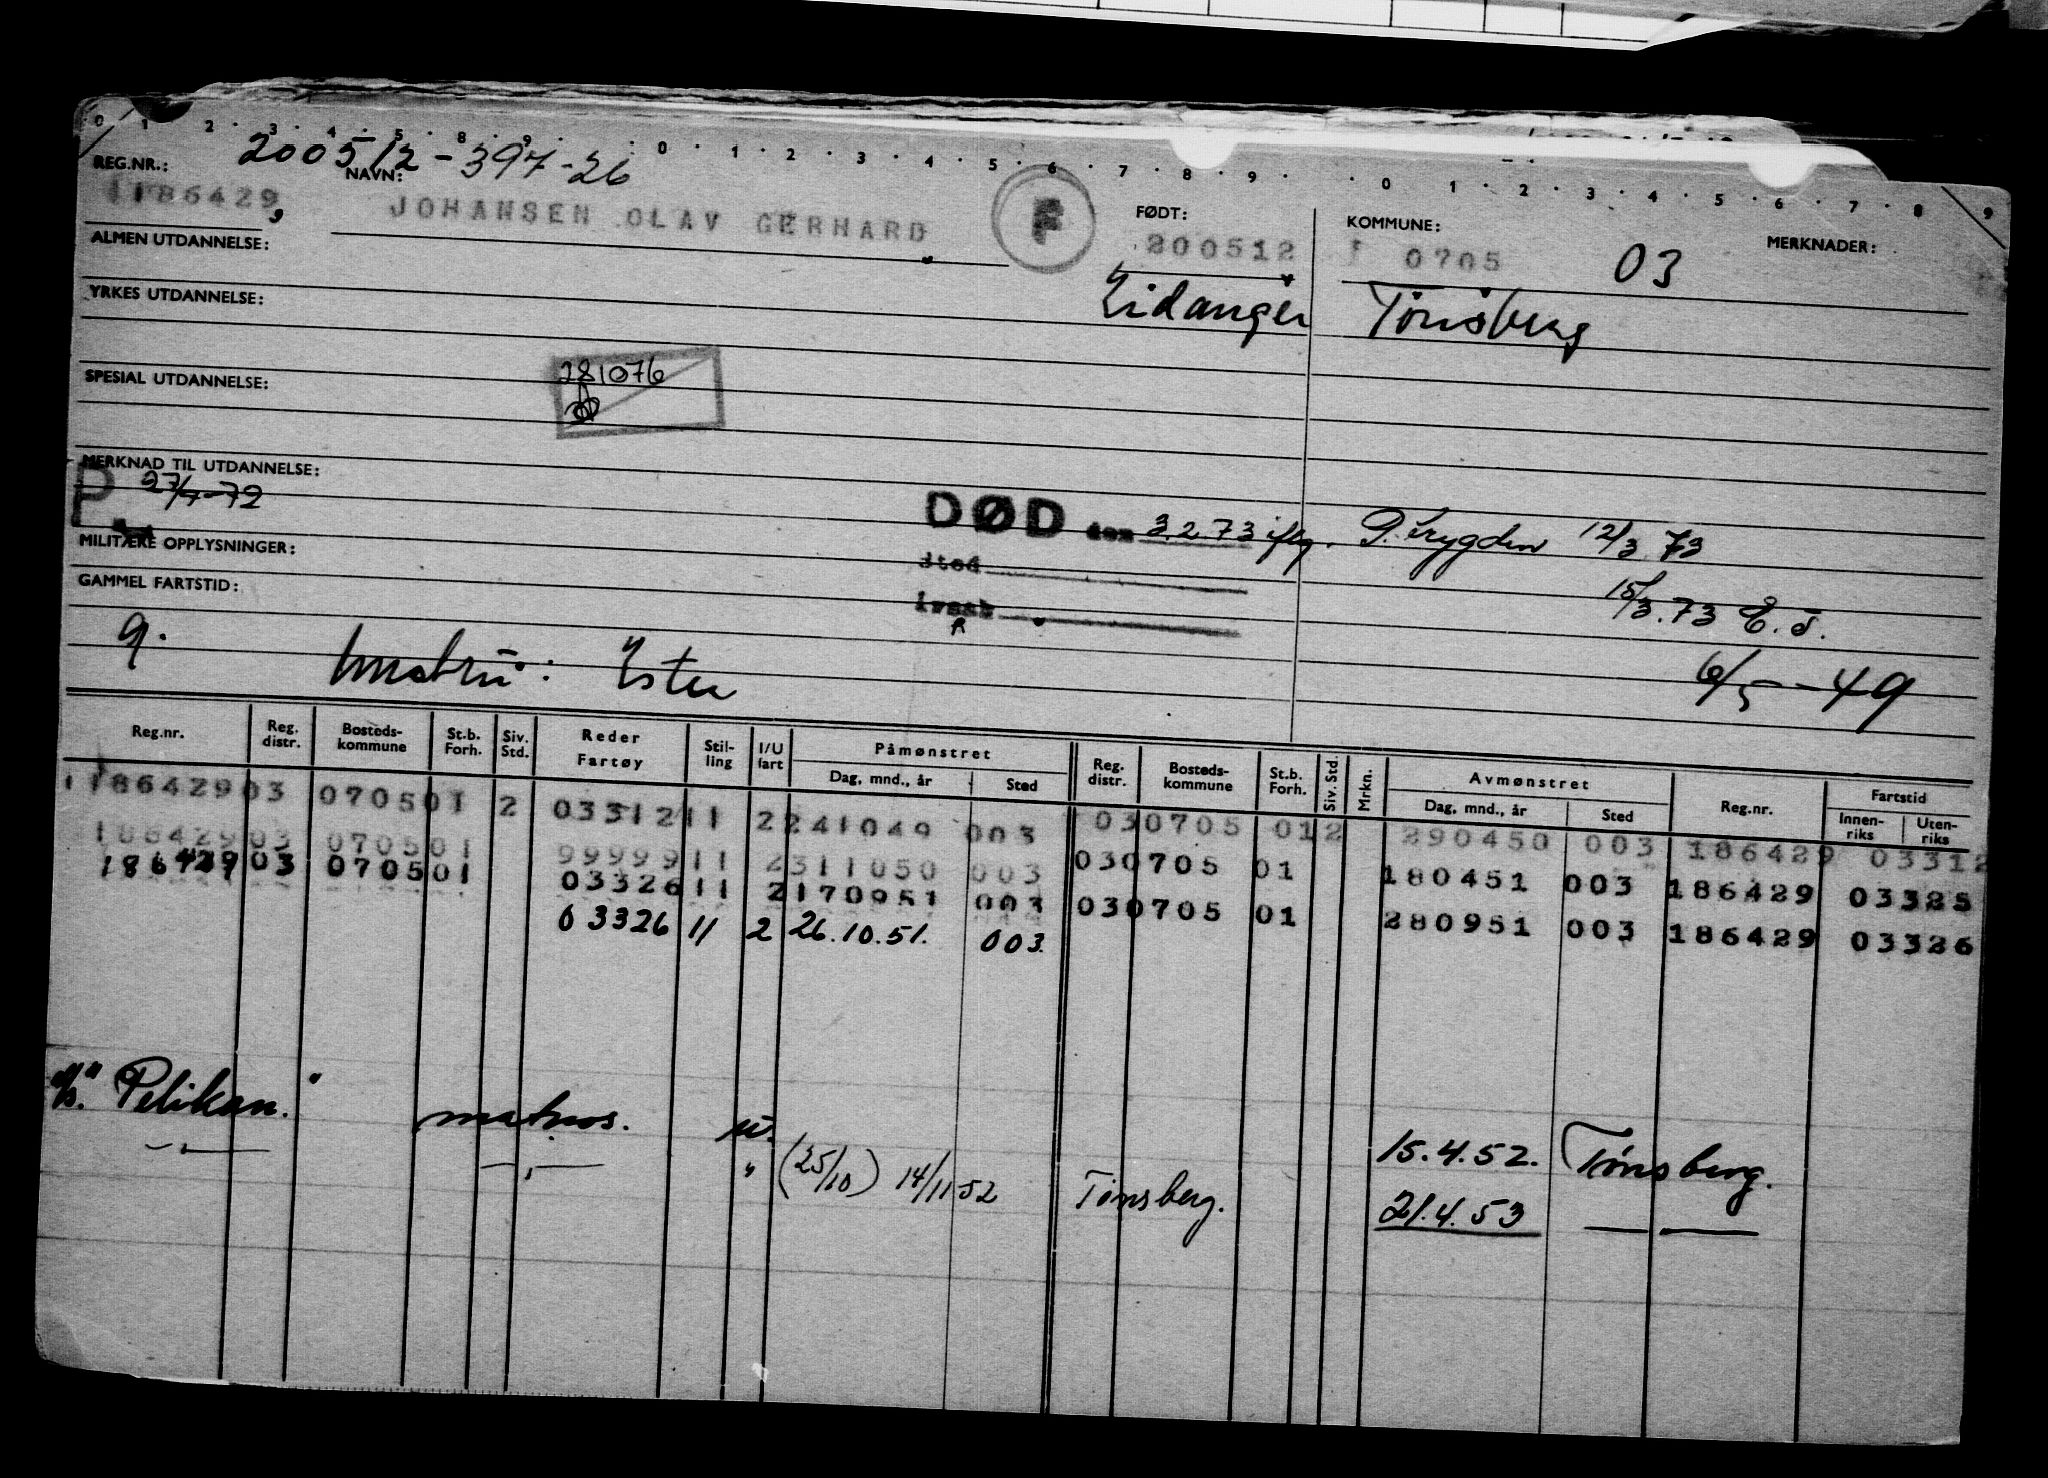 0 1 2 3 4 5 8 9 0 1 2 3 4 5 6 7 8 9 0 1 2 3 4 5 6 7 8 9
200512-397-26
REG.NR.: NAVN: FØDT: KOMMUNE: MERKNADER:
186429 JOHANSEN OLAV GERHARD F 200512 0705 03
ALMEN UTDANNELSE:
Eidanger Tönsberg
YRKES UTDANNELSE:
281076
SPESIAL UTDANNELSE:
MERKNAD TIL UTDANNELSE:
P 27/7-72
DØD den 3.2.73 iflg. P.trygden 12/3 73
MILITÆRE OPPLYSNINGER:
sted
15/3.73 E.J.
GAMMEL FARTSTID:
årsak
9. hustru: Ester 6/5-49
Reg.nr. Reg. distr. Bosteds-kommune St.b. Forh. Siv. Std. Reder Fartøy Stil-ling I/U fart Påmønstret Dag, mnd., år Sted Reg. distr. Bosteds-kommune St.b. Forh. Siv. Std. Mrkn. Avmønstret Dag, mnd., år Sted Reg.nr. Fartstid Innen-riks Uten-riks
186429 03 0705 01 2 03312 11 2 241049 003 03 0705 01 2 290450 003 186429 03312
186429 03 0705 01 99999 11 2 311050 003 03 0705 01 180451 003 186429 03325
186429 03 0705 01 03326 11 2 170951 003 03 0705 01 280951 003 186429 03326
03326 11 2 26.10.51. 003
"Pelikan." matros. u. 15.4.52. Tönsberg.
— " — — " — " (25/10) 14/11 52 Tönsberg. 21.4.53 — " —